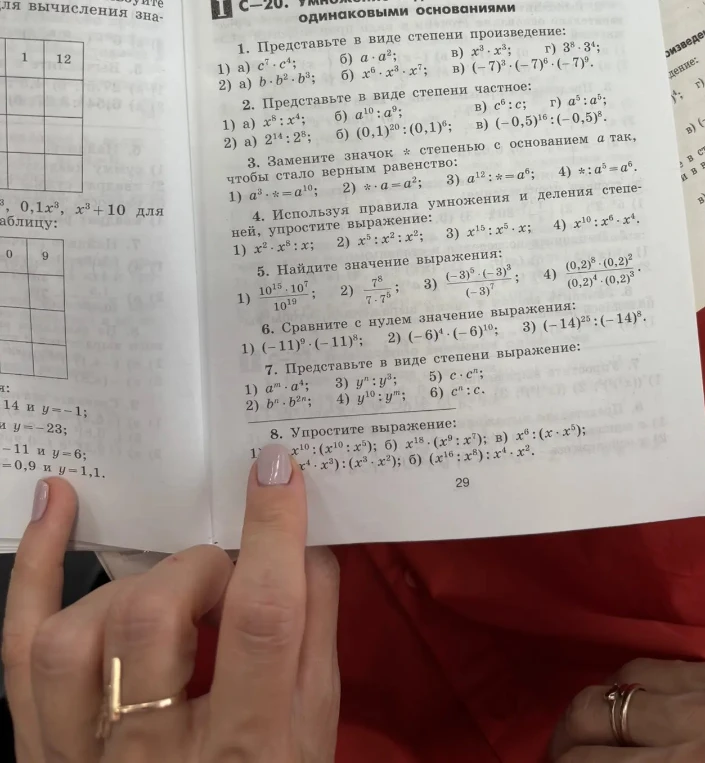 для вычисления зна-
1 12
, 0,1x³, x³+10 для
таблицу:
0 9
14 и y=−1;
и y=−23;
−11 и y=6;
=0,9 и y=1,1.
С—20.
одинаковыми основаниями
1. Представьте в виде степени произведение:
1) а) c⁷ · c⁴; б) a · a²; в) x³ · x³; г) 3⁸ · 3⁴;
2) а) b · b² · b³; б) x⁶ · x³ · x⁷; в) (−7)³ · (−7)⁶ · (−7)⁹.
2. Представьте в виде степени частное:
1) а) x⁸ : x⁴; б) a¹⁰ : a⁹; в) c⁶ : c; г) a⁵ : a⁵;
2) а) 2¹⁴ : 2⁸; б) (0,1)²⁰ : (0,1)⁶; в) (−0,5)¹⁶ : (−0,5)⁸.
3. Замените значок * степенью с основанием a так,
чтобы стало верным равенство:
1) a³ · * = a¹⁰; 2) * · a = a²; 3) a¹² : * = a⁶; 4) * : a⁵ = a⁶.
4. Используя правила умножения и деления степе-
ней, упростите выражение:
1) x² · x⁸ : x; 2) x⁵ : x² : x²; 3) x¹⁵ : x⁵ · x; 4) x¹⁰ : x⁶ · x⁴.
5. Найдите значение выражения:
1) 10¹⁵ · 10⁷ / 10¹⁹; 2) 7⁸ / 7 · 7⁵; 3) (−3)⁵ · (−3)³ / (−3)⁷; 4) (0,2)⁸ · (0,2)² / (0,2)⁴ · (0,2)³.
6. Сравните с нулем значение выражения:
1) (−11)⁹ · (−11)⁸; 2) (−6)⁴ · (−6)¹⁰; 3) (−14)²⁵ : (−14)⁸.
7. Представьте в виде степени выражение:
1) aᵐ · a⁴; 3) yⁿ : y³; 5) c · cⁿ;
2) bⁿ · b²ⁿ; 4) y¹⁰ : yᵐ; 6) cⁿ : c.
8. Упростите выражение:
1) x¹⁰ : (x¹⁰ : x⁵); б) x¹⁸ · (x⁹ : x⁷); в) x⁶ : (x · x⁵);
x⁴ · x³) : (x³ · x²); б) (x¹⁶ : x⁸) : x⁴ · x².
29